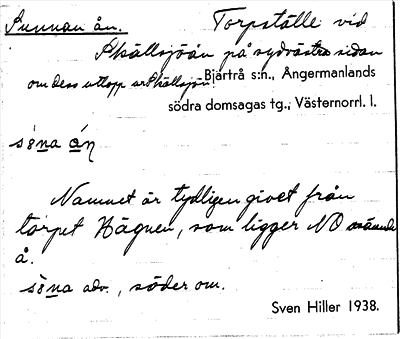 Sunnan ån. Torpställe vid
Skällsjöån på sydvästra sidan
om dess utlopp ur Skällsjön. Bjärtrå s:n., Ångermanlands
södra domsagas tg., Västernorrl. l.
Namnet är tydligen givet från
torpet Hägnen, som ligger NO
å.
adv., söder om.
Sven Hiller 1938.